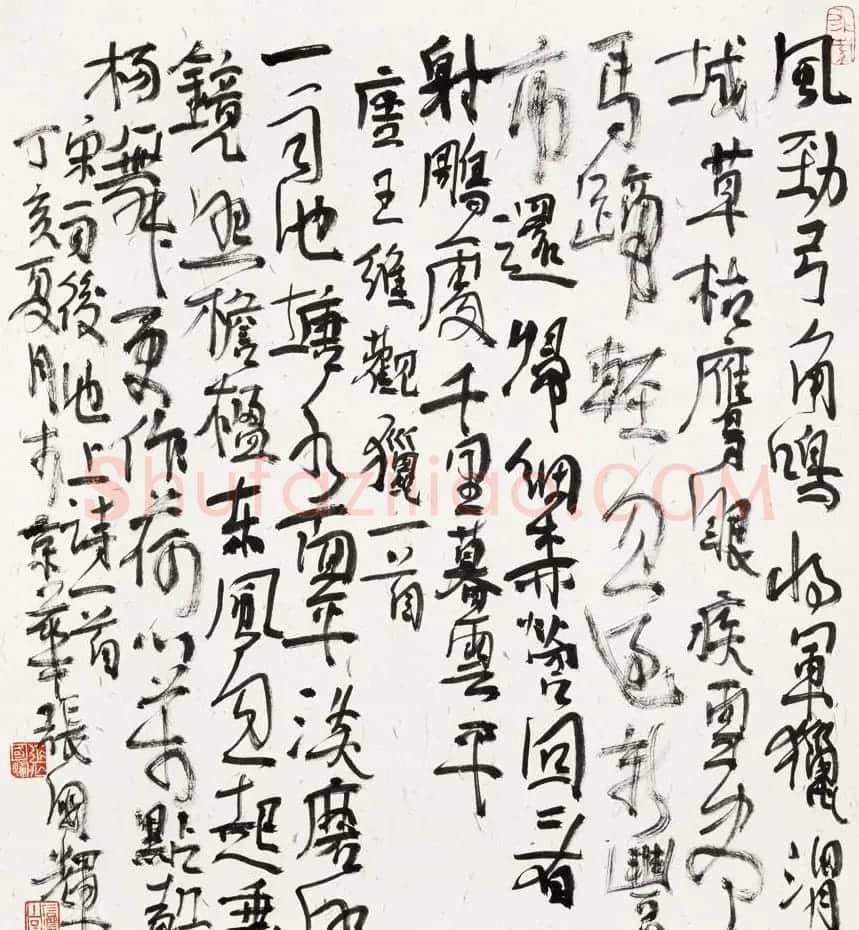 風勁弓角鳴将軍獵渭
城草枯鷹眼疾雪尽
馬蹄輕忽過新豐
市還歸細柳營回看
射鵰處千里暮雲平
唐王維觀獵一首
一雨池塘水面平淡磨明
鏡照檐楹东風忽起垂
楊舞更作荷心万點聲
宋 後池上詩一首
丁亥夏月于京華張國輝
Shufaziliao.COM